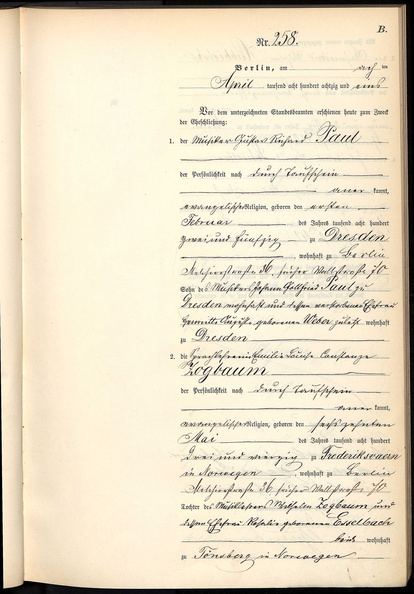 B.
Nr. 258.
Berlin, am acht ten
April tausend acht hundert achtzig und eins
Vor dem unterzeichneten Standesbeamten erschienen heute zum Zweck
der Eheschließung:
1. der Musiker Gustav Richard Paul
der Persönlichkeit nach durch Taufschein
aner kannt,
evangelischer Religion, geboren den ersten
Februar des Jahres tausend acht hundert
zwei und fünfzig zu Dresden
, wohnhaft zu Berlin
Melchiorstraße 36, früher Wallstraße 70
Sohn des Musikers Johann Gottfried Paul zu
Dresden wohnhaft und dessen verstorbener Ehefrau
Auguste geborenen Weber zuletzt wohnhaft
zu Dresden
2. die Sprachlehrerin Emilie Louise Constanze
Zogbaum
der Persönlichkeit nach durch Taufschein
aner kannt,
evangelischer Religion, geboren den sechszehnten
Mai des Jahres tausend acht hundert
drei und vierzig zu Frederiksvaern
in Norwegen, wohnhaft zu Berlin
Melchiorstraße 36 früher Wallstraße 70
Tochter des Musiklehrers Wilhelm Zogbaum und
dessen Ehefrau Rosalie geborenen Esselbach
beide wohnhaft
zu Tönsberg in Norwegen